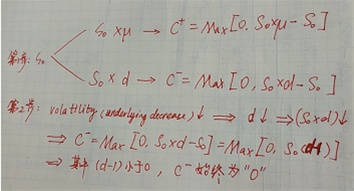 S₀ × μ → C⁺ = Max [0, S₀×μ − S₀]
第1步: S₀
S₀ × d → C⁻ = Max [0, S₀×d − S₀]
第2步: volatility (underlying decrease) ↓ ⇒ d↓ ⇒ (S₀×d)↓
⇒ C⁻ = Max [0, S₀×d−S₀] = Max [0, S₀(d-1)]
⇒ 其中 (d-1) 小于0, C⁻ 始终为 "0"